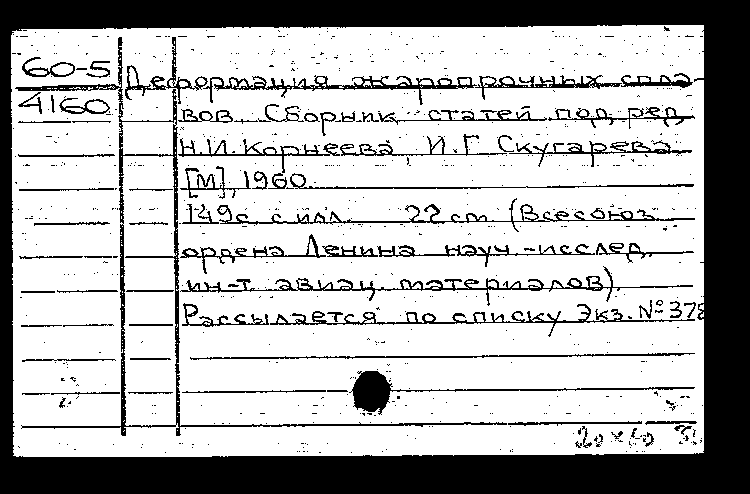 60-5 Деформация жаропрочных спла-
4160 вов. Сборник статей под ред.
Н.И. Корнеева, И.Г. Скугарева.
[М], 1960.
149с. с илл. 22 см. (Всесоюз.
ордена Ленина науч.-исслед.
ин-т. авиац. материалов).
Рассылается по списку. Экз. № 378
20×60